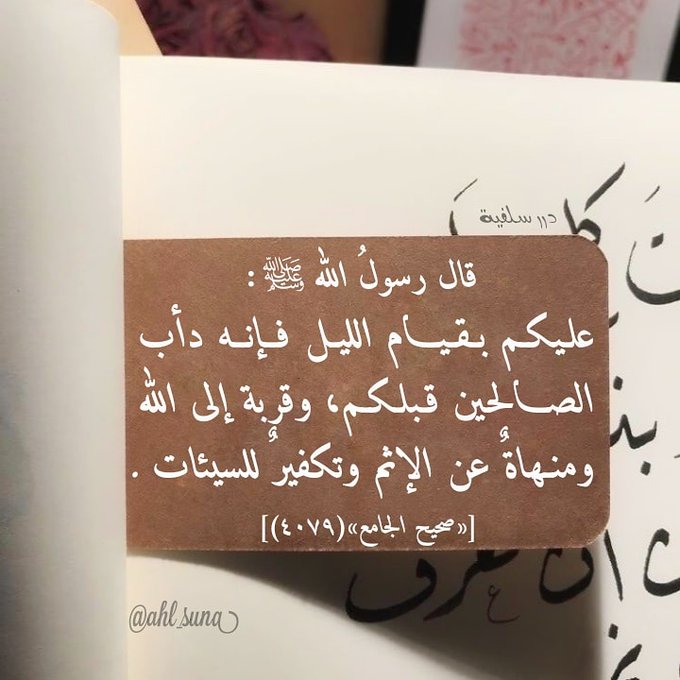 درر سلفية
قال رسولُ الله ﷺ :
عليكم بقيام الليل فإنه دأب
الصالحين قبلكم، وقربة إلى الله
ومنهاةٌ عن الإثم وتكفيرٌ للسيئات .
[«صحيح الجامع»(٤٠٧٩)]
@ahl_suna